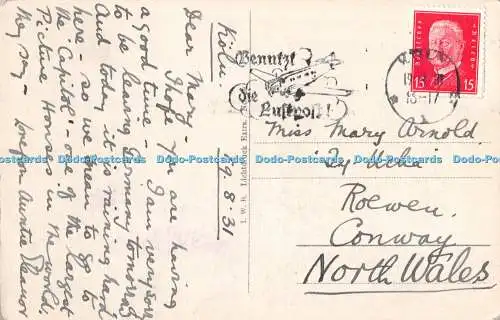 Köln. 19.8.31
Dear Mary
I hope you are having
a good time - I am very sorry
to be leaving Germany tomorrow
And today it is raining hard
here - so we mean to go to
the 'Capitol' - one of the largest
Picture Houses in the world.
they say - Love from Auntie Eleanor
I. W. B. Lichtdruck
Benutzt
die
Luftpost!
KÖLN
18-17
15 15
Miss Mary Arnold
Roewen.
Conway
North Wales
Dodo-Postcards Dodo-Postcards Dodo-Postcards Dodo-Postcards Dodo-Postcards